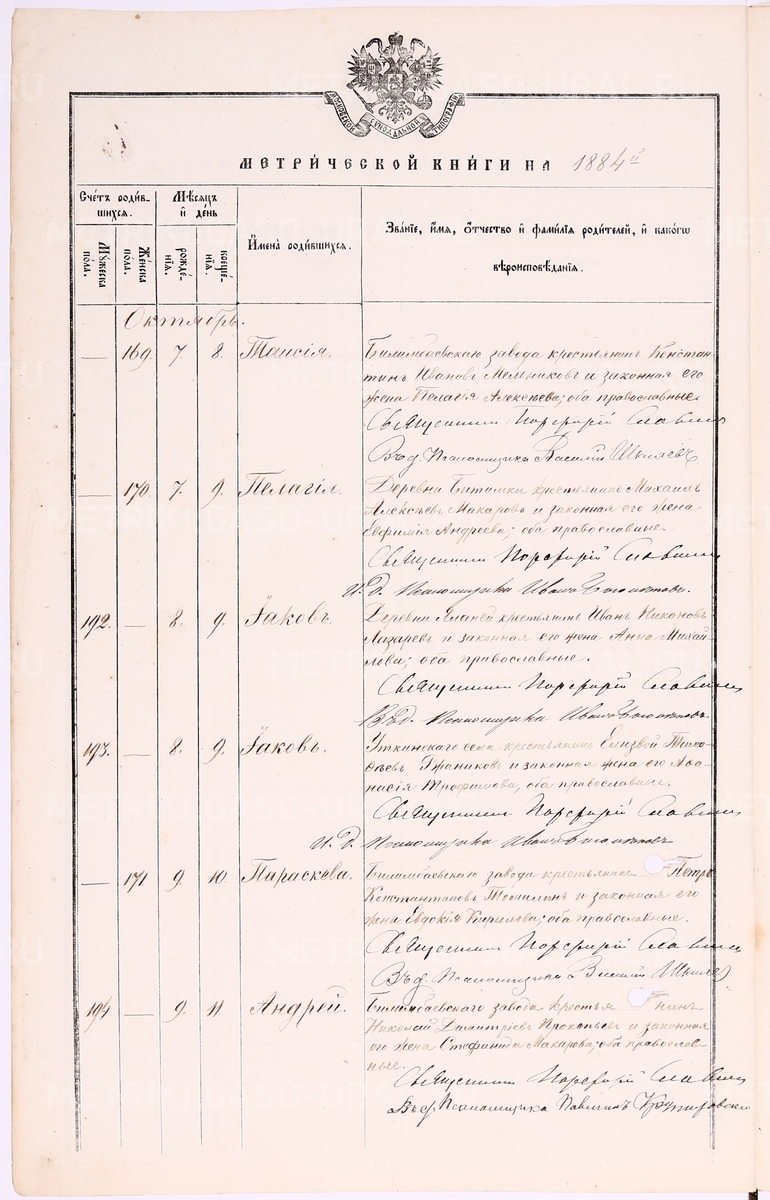 МОСКОВСКОЙ СѴНОДАЛЬНОЙ ТИПОГРАФІИ
МЕТРИ́ЧЕСКОЙ КНИ́ГИ НА 1884 й
Сче́тъ роди́в-
шихся.
Му́жеска
по́ла.
Же́нска
по́ла.
Мѣ́сяцъ
и҆ де́нь
рожде́-
нїя.
креще́-
нїя.
И҆мена̀ роди́вшихся.
Зва́нїе, и҆́мя, ѻ҆́тчество и҆ фами́лїя роди́телей, и҆ како́гѡ
вѣроисповѣ́данїя.
Октябрь.
— 169. 7 8. Таисія. Билимбаевскаго завода крестьянинъ Констан-
тинъ Ивановъ Мельниковъ и законная его
жена Пелагія Алексѣева; оба православные.
Священникъ Порфирій Славнинъ
Въ д. Псаломщика Василій Шиляевъ
— 170. 7. 9. Пелагія. Деревни Битимки крестьянинъ Михаилъ
Алексѣевъ Макаровъ и законная его жена
Евфимія Андреева; оба православные.
Священникъ Порфирій Славнинъ
И. д. Псаломщика Иванъ
192. — 8. 9. Іаковъ. Деревни крестьянинъ Иванъ Никоновъ
Лазаревъ и законная его жена Анна Михай-
лова; оба православные.
Священникъ Порфирій Славнинъ
В. д. Псаломщика Иванъ
193. — 8. 9. Іаковъ. Уткинскаго села крестьянинъ Елизвой
и законная жена его Аѳа-
насія Трофимова, оба православные.
Священникъ Порфирій Славнинъ
И. д. Псаломщика Иванъ
— 171 9. 10. Параскева. Билимбаевскаго завода крестьянинъ Петръ
Константиновъ Томилинъ и законная его
жена Евдокія Кирилова; оба православные.
Священникъ Порфирій Славнинъ
Въ д. Псаломщика Василій Шиляевъ
194. — 9. 11. Андрей. Билимбаевскаго завода крестья нинъ
Николай Димитріевъ Прокопьевъ и законная
его жена Стефанида Макарова; оба православ-
ные.
Священникъ Порфирій Славнинъ
Въ д. Псаломщика Павлинъ